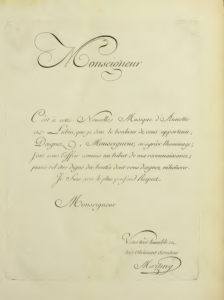 Monseigneur
C'est à cette Nouvelle Musique d'Annette
et Lubin, que je dois le bonheur de vous appartenir,
Daignez, Monseigneur, en agréer l'hommage;
Je ose vous l'offrir comme un tribut de ma reconnaissance,
puisse-t-il être digne des bontés dont vous daignez m'honorer.
Je suis avec le plus profond Respect.
Monseigneur
Votre très humble et
très Obéissant Serviteur